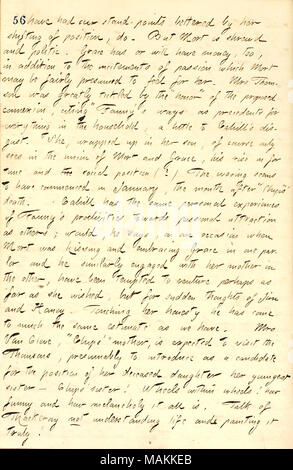 56 have had our stand-points bettered by her
shifting of position, do. But Mort is shrewd
and politic. Grace has or will have money, too,
in addition to the incitements of passion which Mort
may be fairly presumed to feel for her. Mrs. Thom-
son was greatly tickled by the "honor" of the proposed
connexion, citing "Fanny's ways" as precedents for
everything in the household, a little to Cahill's dis-
gust. She, wrapped up in her son, of course only
sees in the union of Mort and Grace, his rise in for-
tune and the social position! / The wooing seems
to have commenced in January, the month after "Chips'"
death. Cahill had the same personal experiences
of Fanny's proclivities towards personal attraction
as others; would, he says, on an occasion when
Mort was kissing and embracing Grace in one par-
lor and he similarly engaged with her mother in
the other, have been tempted to venture perhaps as
far as she wished, but for sudden thoughts of Jim
and Haney. Touching her honesty he has come
to much the same estimate as we have. Mrs
Van Cleve, "Chips'" mother, is expected to visit the
Thomsons, presumably to introduce as a candidate
for the position of her deceased daughter her younger
sister — Chips' sister. Wheels within wheels! how
funny and how melancholy it all is. Talk of
Thackeray not understanding life and painting it
truly.
alamy
www.alamy.com - MAKKEB